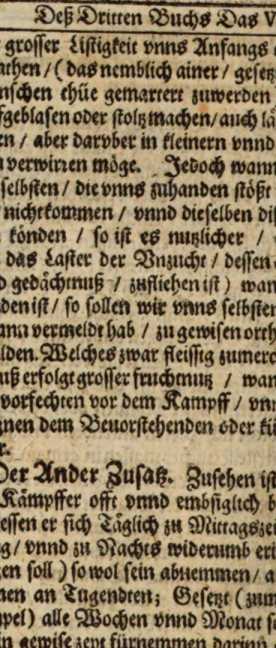 Deß Dritten Buchs Das
grosser Listigkeit vnns Anfangs
athen / ( das nemblich ainer / gesetz
nschen thüe gemartert zuwerden
fgeblasen oder stoltz machen / auch lä
en / aber darvber in kleinern vnnd
verwirren möge. Jedoch wann
selbsten / die vnns zuhanden stößt
nicht kommen / vnnd dieselben di
könden / so ist es nutzlicher /
das Laster der Vnzucht / dessen
d gedächtnuß / zufliehen ist ) wan
den ist / so sollen wir vnns selbsten
ana vermeldt hab / zu gewisen orth
lden. Welches zwar fleissig zumerc
uß erfolgt grosser fruchtnutz / wan
vorfechten vor dem Kampff / vnn
gnen dem Beuorstehenden oder kü
r.
Der Ander Zusatz. Zusehen ist
Kämpffer offt vnnd embsiglich b
essen er sich Täglich zu Mittagszei
g / vnnd zu Nachts widerumb eri
zen soll ) so wol sein abnemmen / a
nen an Tugendten; Gesetzt ( zum
mpel ) alle Wochen vnnd Monat s
in gewise zeyt fürnemmen darinn